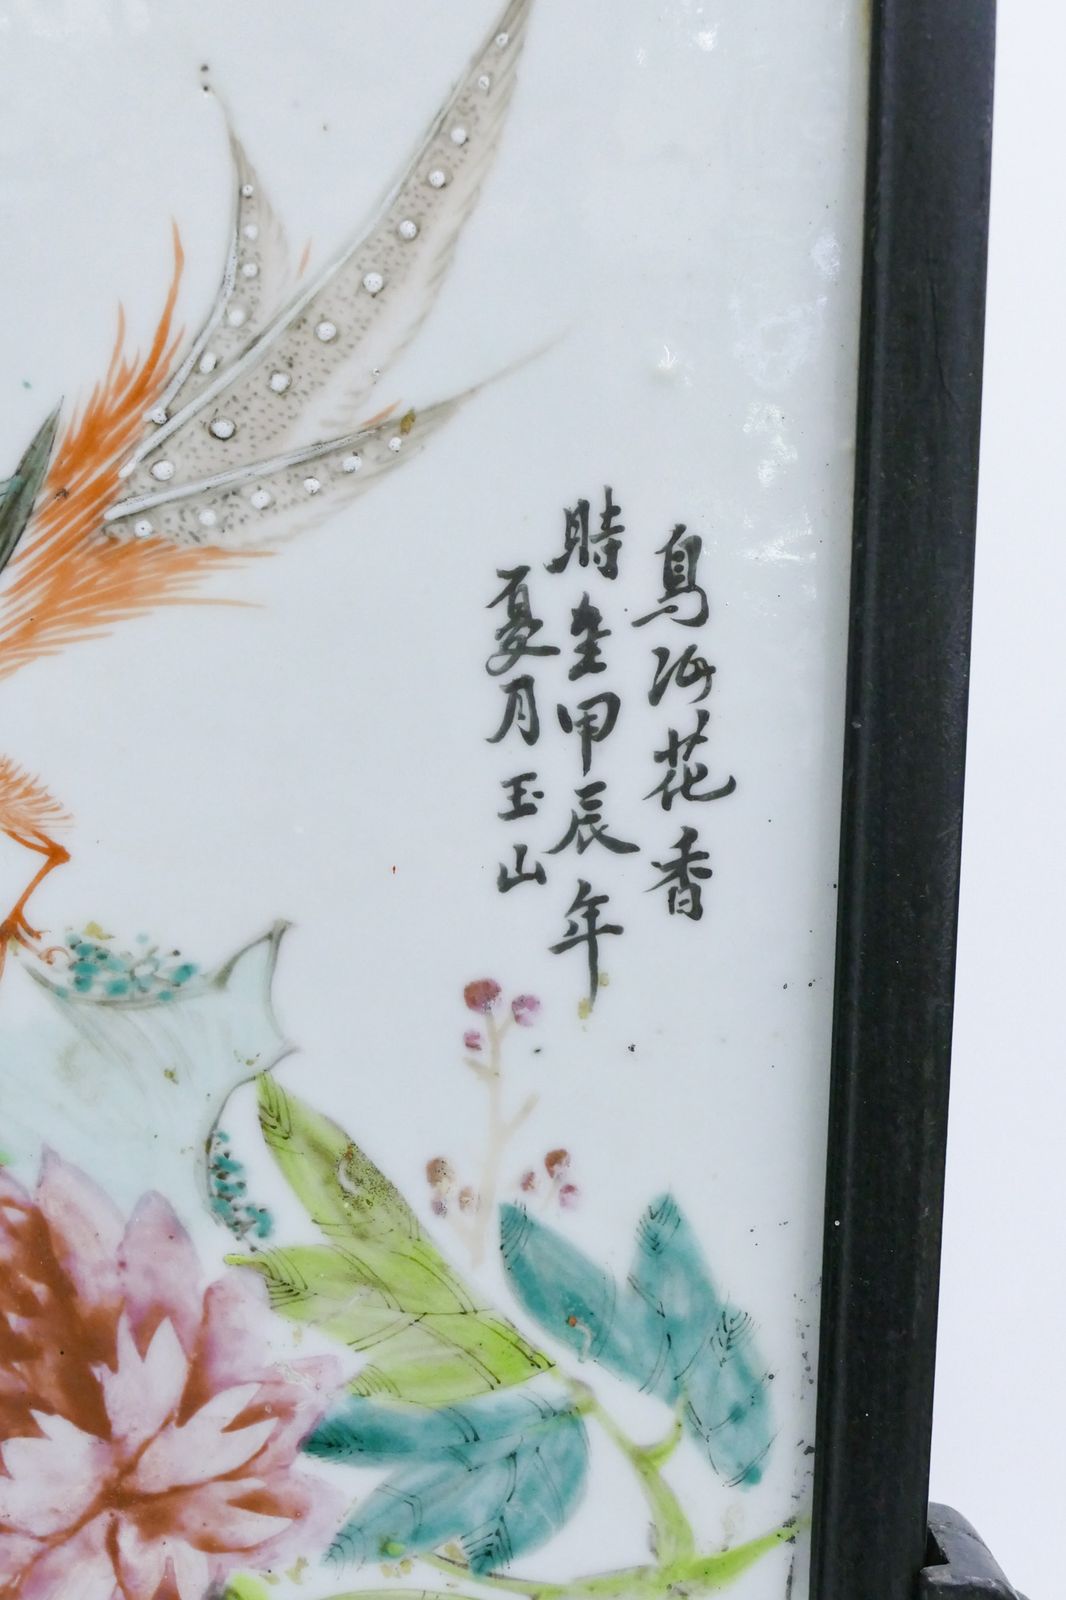 鳥語花香
時在甲辰年
夏月玉山